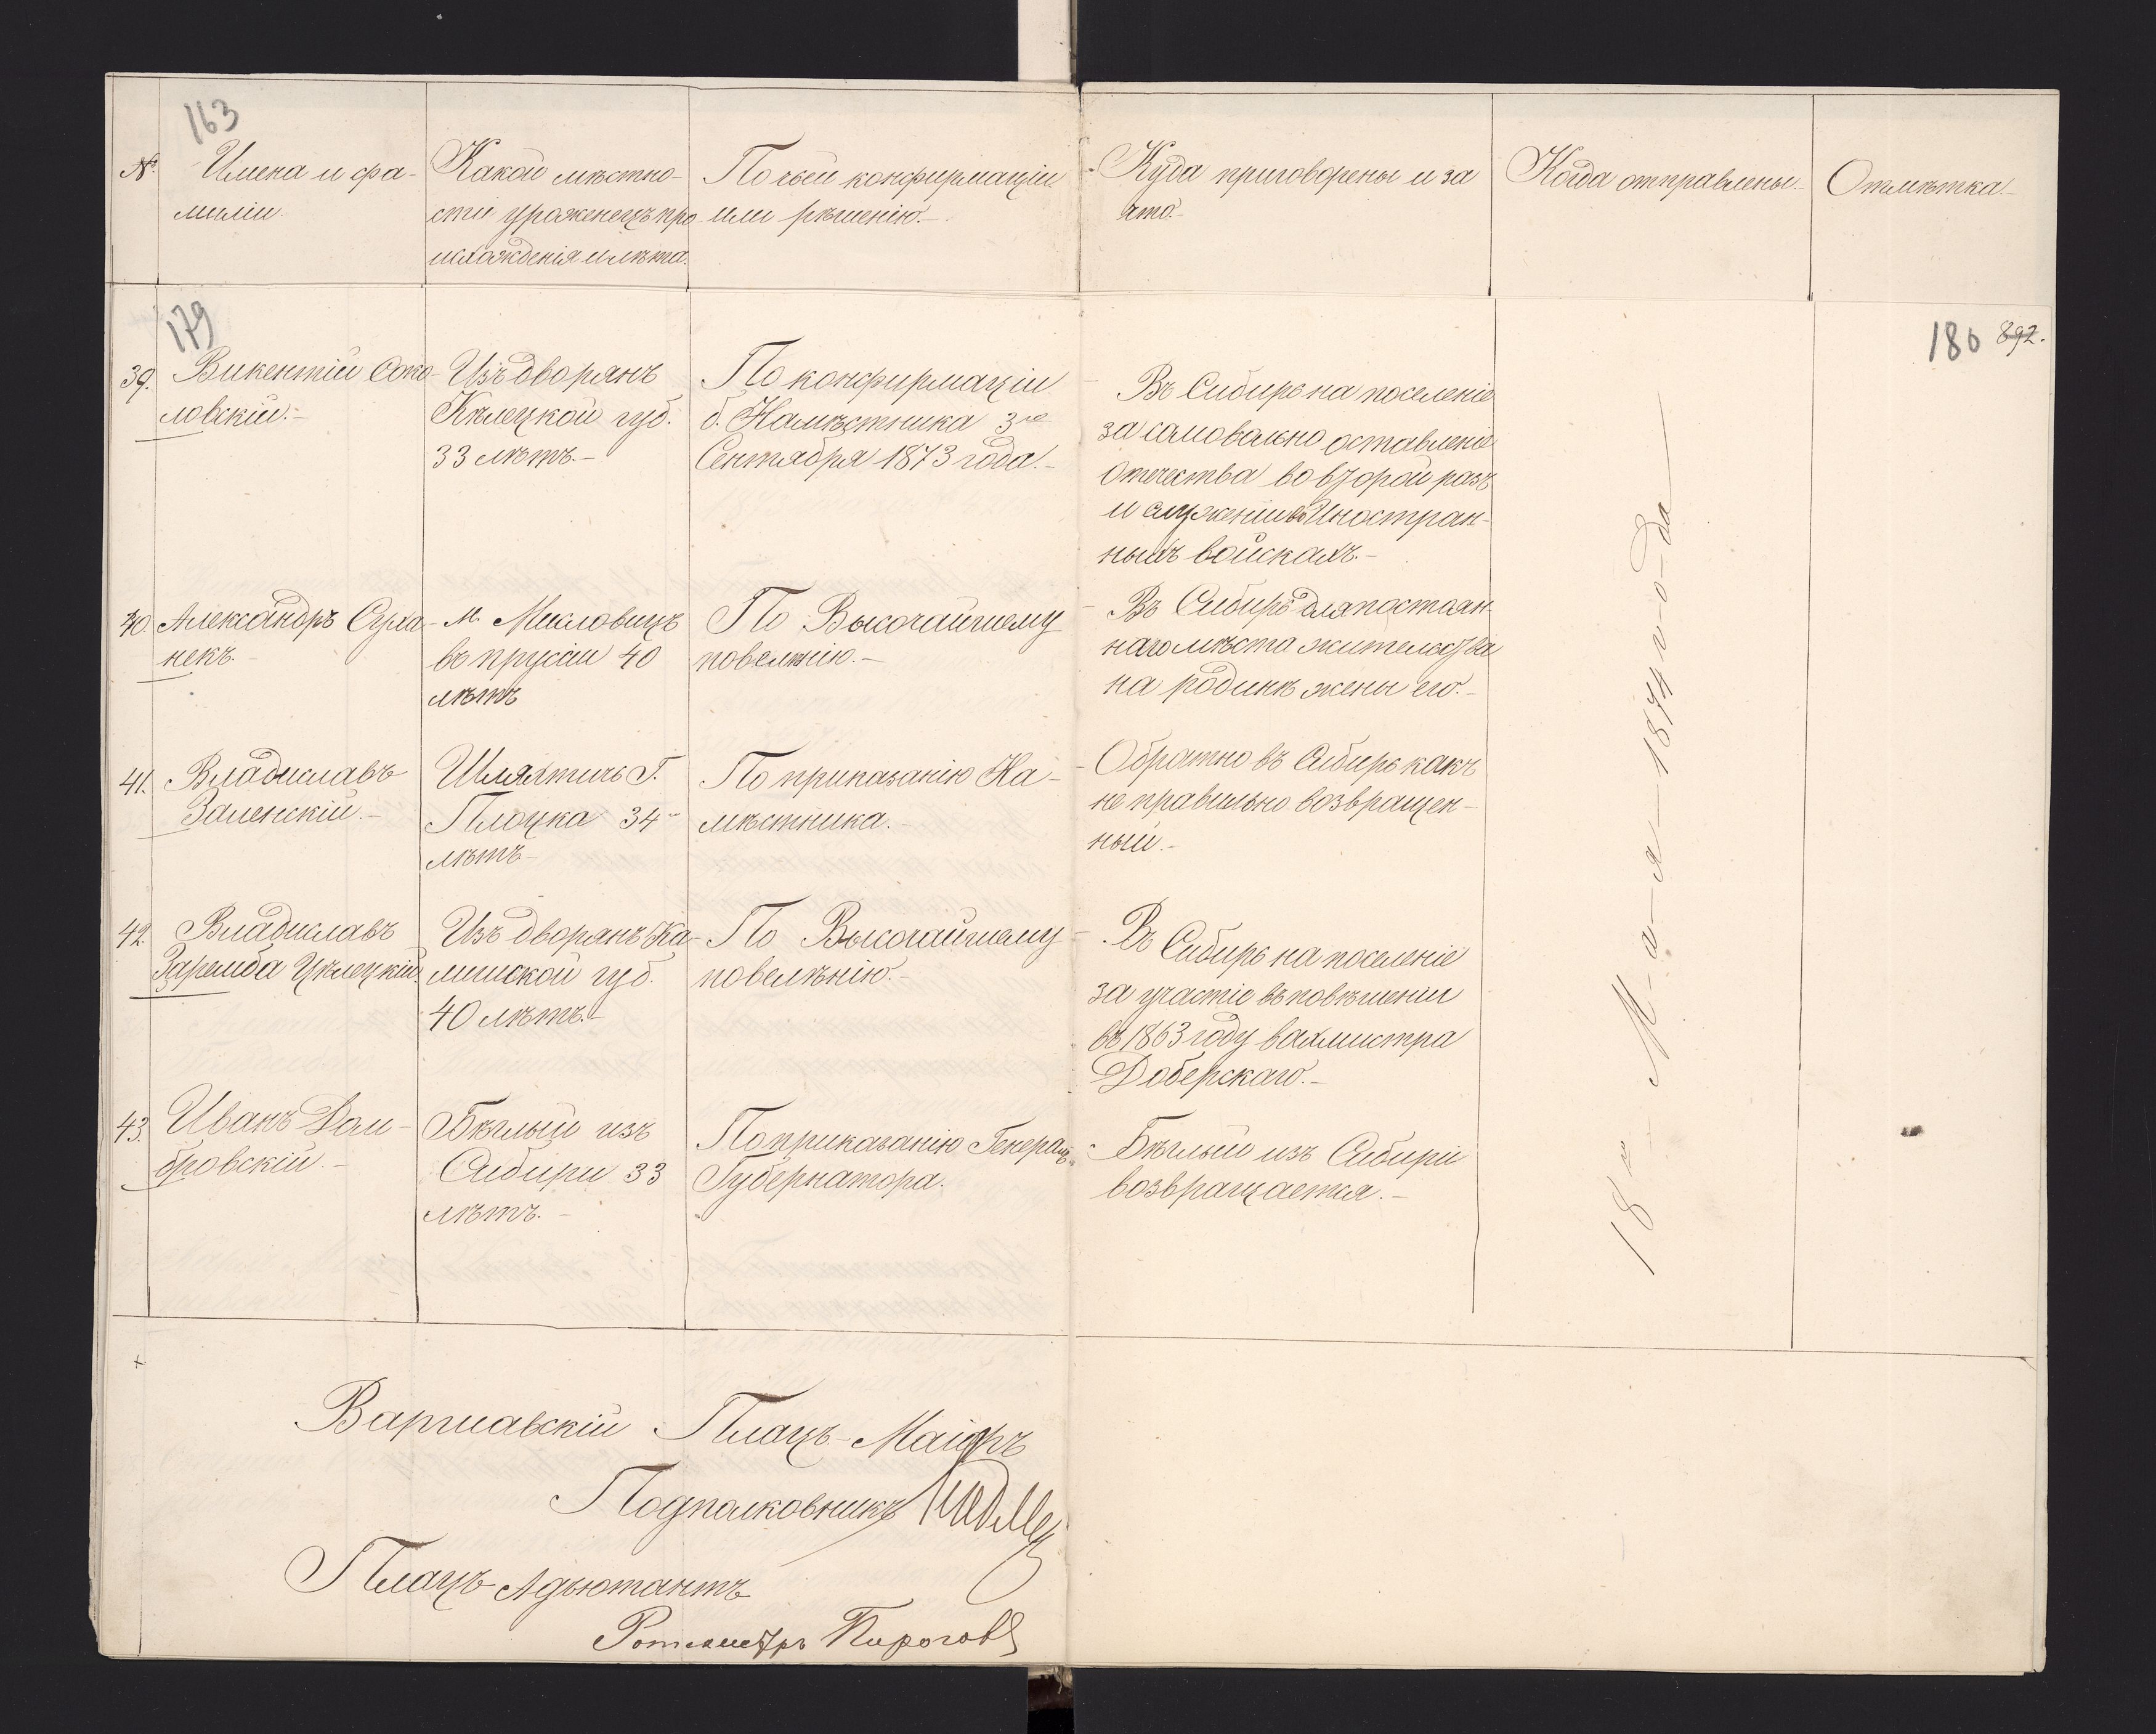 163
№ Имена и фа-
миліи.
Какой мѣстно-
сти уроженецъ про
исхожденія и лѣта.
По чьей конфирмаціи
или рѣшенію.-
Куда приговорены и за
что.-
Когда отправлены.-
Отмѣтка.-
179
180 892.
39. Викентій Соко-
ловскій.-
Изъ дворянъ
Кѣлецкой губ.
33 лѣтъ.-
По конфирмаціи
б. Намѣстника 3го
Сентября 1873 года.-
Въ Сибирь на поселеніе
за самовольно оставленіе
отечества во второй разъ
и служеніи въ Иностран-
ныхъ войскахъ.-
40. Александръ Суха-
некъ.-
м. Мисловицъ
въ прусіи 40
лѣтъ
По Высочайшему
повелѣнію.-
Въ Сибирь для постоян-
наго мѣста жительства
на родинѣ жены его.-
41. Владиславъ
Заленскій.-
Шляхтичь Г.
Плоцка 34
лѣтъ-
По приказанію На-
мѣстника.-
Обратно въ Сибирь какъ
не правильно возвращен-
ный.-
42. Владиславъ
Заремба Цѣлецкій.
Изъ дворянъ Ка-
лишской губ.
40 лѣтъ.-
По Высочайшему
повелѣнію.-
Въ Сибирь на поселеніе
за участіе въ повѣшеніи
въ 1863 году вахмистра
Доберскаго.-
43. Иванъ Дом-
бровскій.-
Бѣглый изъ
Сибири 33
лѣтъ.-
По приказанію Генералъ
Губернатора.
Бѣглый изъ Сибири
возвращается.-
18го М-а-я-1874 г-о-да
Варшавскій Плацъ-Маіоръ
Подполковникъ
Плацъ-Адьютантъ
Ротмистръ Пироговъ